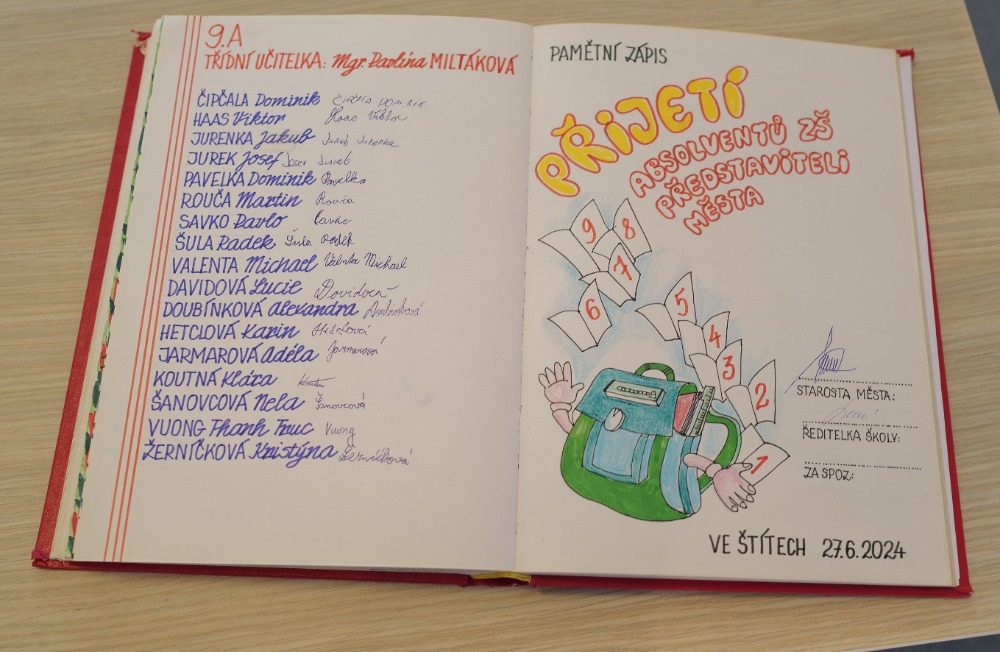 9.A
TŘÍDNÍ UČITELKA: Mgr. Pavlína MILTÁKOVÁ
ČIPČALA Dominik
HAAS Viktor Haas Viktor
JURENKA Jakub Jakub Jurenka
JUREK Josef Josef Jurek
PAVELKA Dominik Pavelka
ROUČA Martin Rouča
SAVKO Pavlo Savko
ŠULA Radek Šula Radek
VALENTA Michael Valenta Michael
DAVIDOVÁ Lucie Davidová
DOUBÍNKOVÁ Alexandra Doubínková
HETCLOVÁ Karin Hetclová
JARMAROVÁ Adéla Jarmarová
KOUTNÁ Klára
ŠANOVCOVÁ Nela Šanovcová
VUONG Thanh Truc Vuong
ŽERNÍČKOVÁ Kristýna Žerníčková
PAMĚTNÍ ZÁPIS
PŘIJETÍ
ABSOLVENTŮ ZŠ
PŘEDSTAVITELI
MĚSTA
9
8
7
6
5
4
3
2
1
STAROSTA MĚSTA:
ŘEDITELKA ŠKOLY:
ZA SPOZ:
VE ŠTÍTECH 27.6.2024